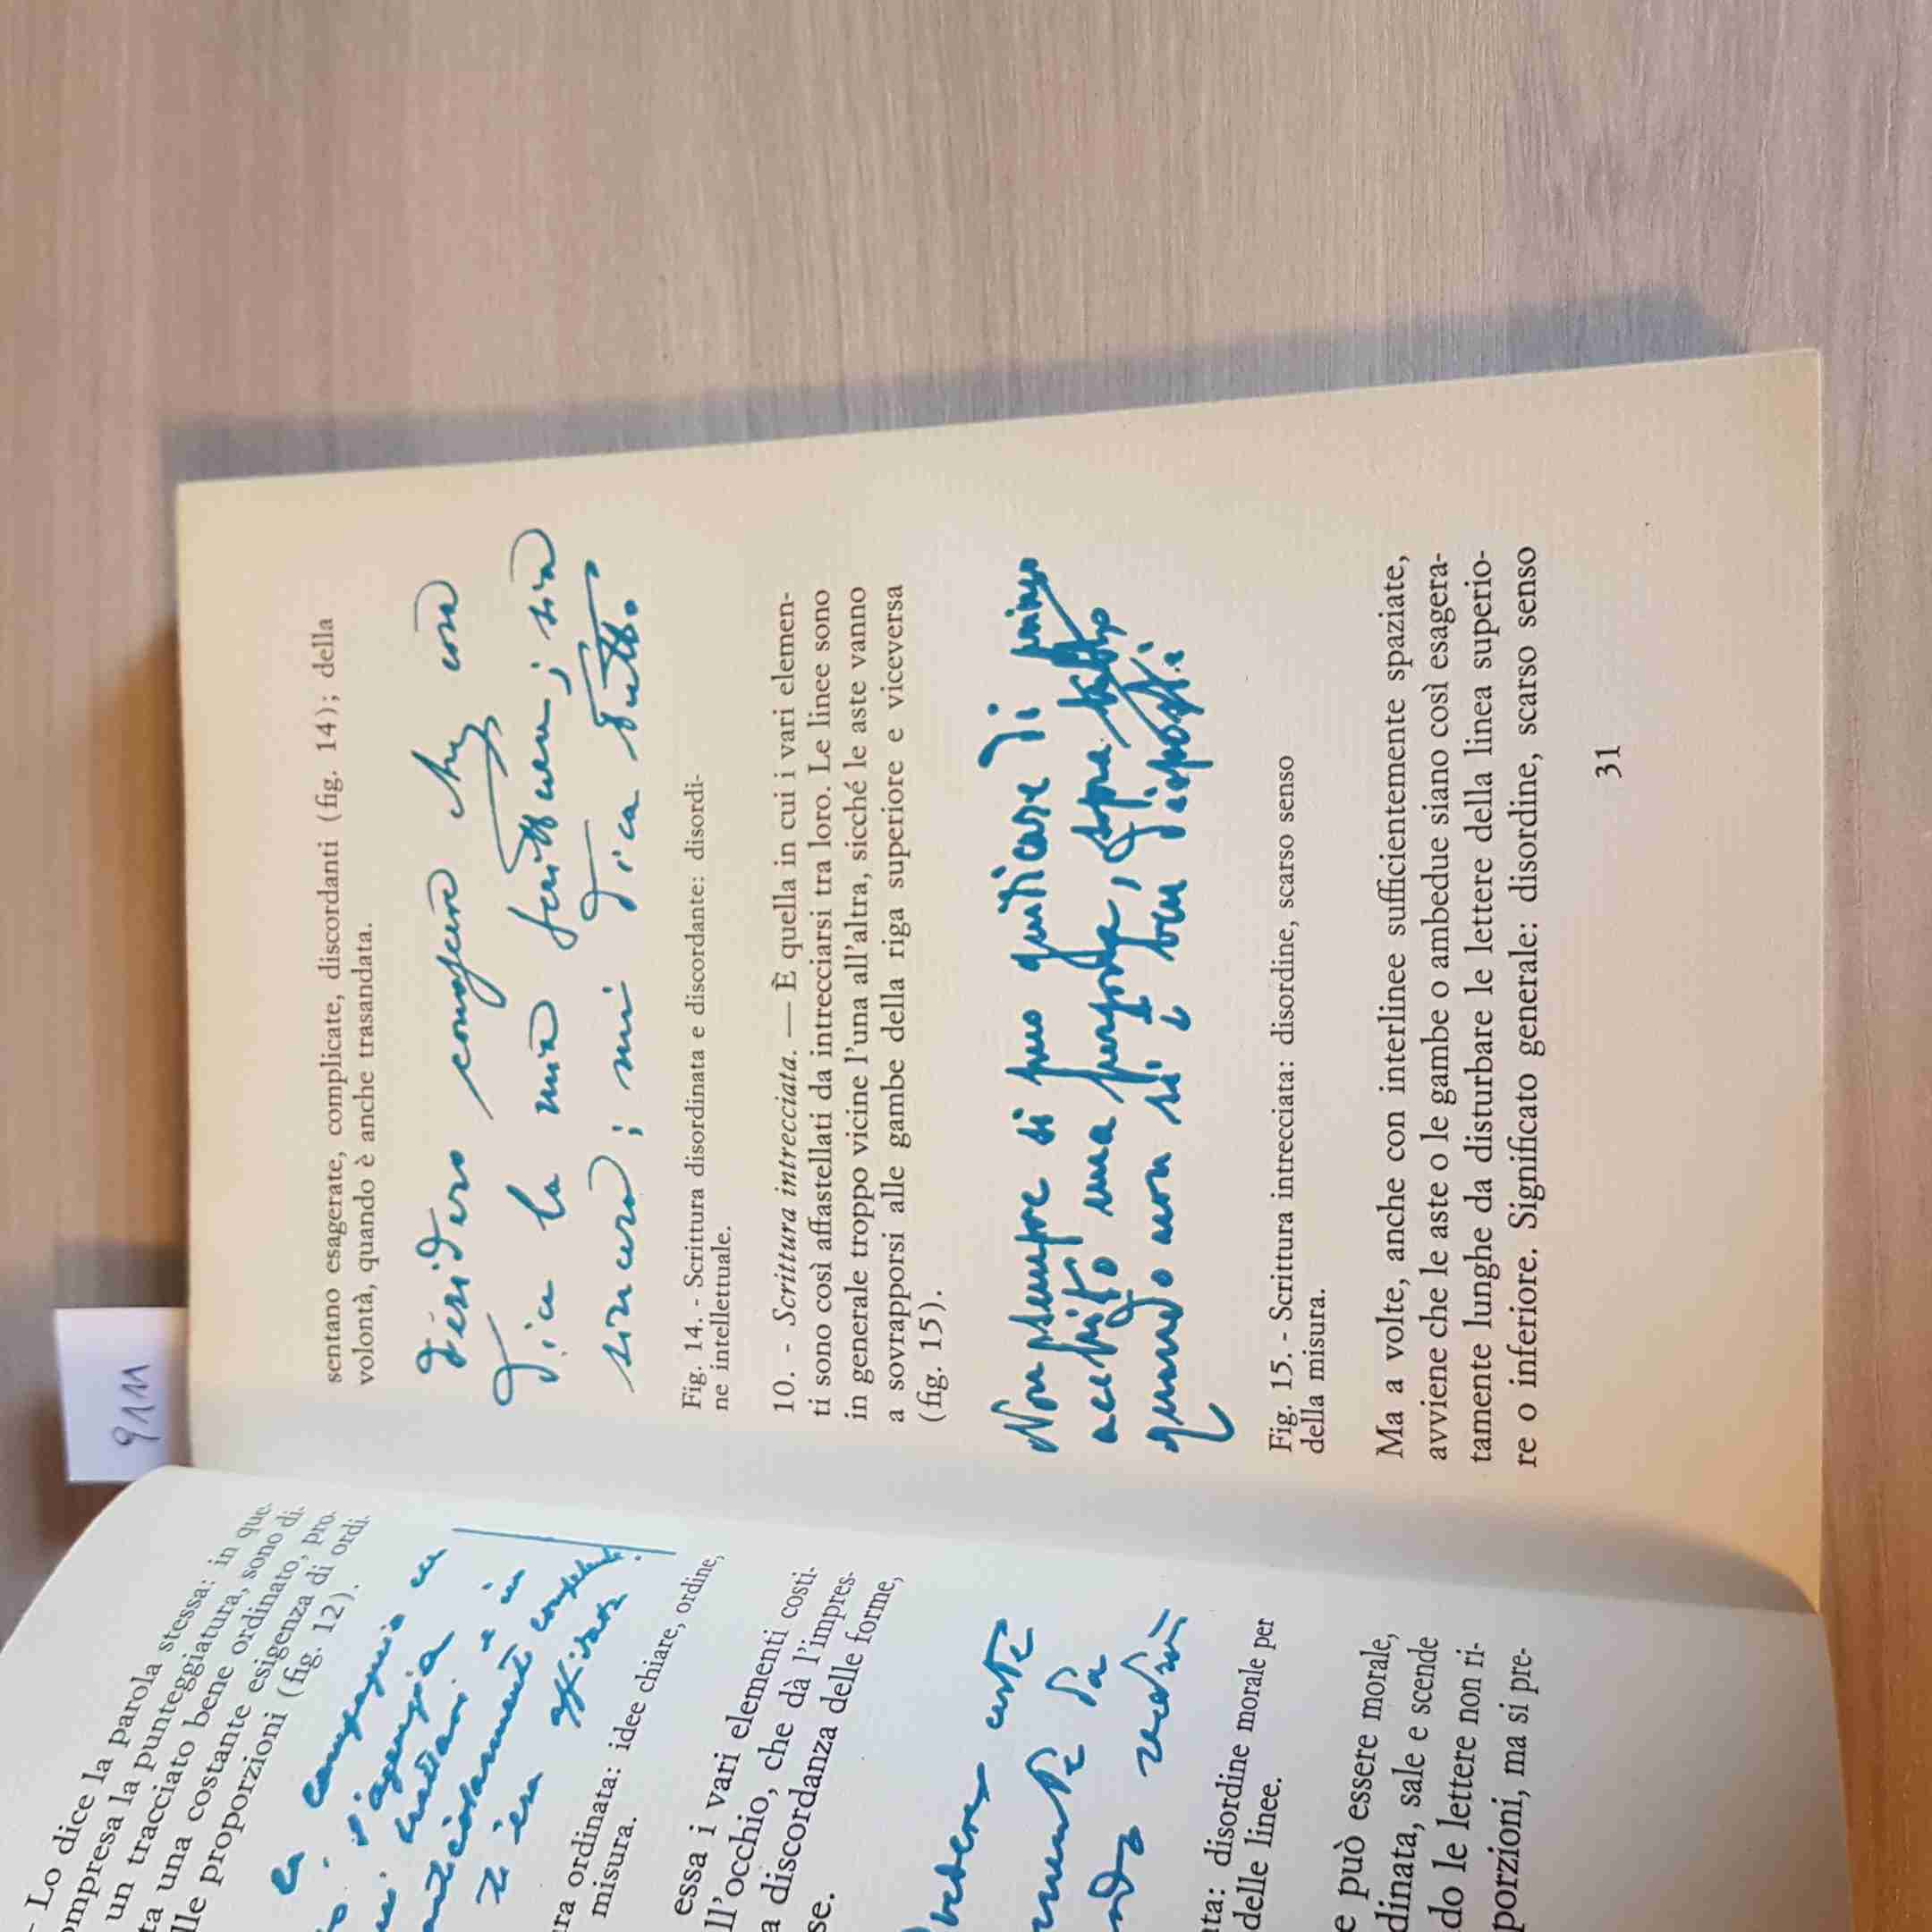 - Lo dice la parola stessa: in que-
ompresa la punteggiatura, sono di-
un tracciato bene ordinato, pro-
ta una costante esigenza di ordi-
lle proporzioni (fig. 12).
ra ordinata: idee chiare, ordine,
misura.
essa i vari elementi costi-
ll'occhio, che dà l'impres-
a discordanza delle forme,
se.
ta: disordine morale per
delle linee.
e può essere morale,
dinata, sale e scende
do le lettere non ri-
porzioni, ma si pre-
9111
sentano esagerate, complicate, discordanti (fig. 14); della
volontà, quando è anche trasandata.
desidero conoscere che cosa
dica la mia scrittura; sia
sincero; mi dica tutto.
Fig. 14. - Scrittura disordinata e discordante: disordi-
ne intellettuale.
10. - Scrittura intrecciata. — È quella in cui i vari elemen-
ti sono così affastellati da intrecciarsi tra loro. Le linee sono
in generale troppo vicine l'una all'altra, sicché le aste vanno
a sovrapporsi alle gambe della riga superiore e viceversa
(fig. 15).
Non sempre si può giudicare di primo
acchito una persona, sopra tutto
quando non si è ben disposti.
Fig. 15. - Scrittura intrecciata: disordine, scarso senso
della misura.
Ma a volte, anche con interlinee sufficientemente spaziate,
avviene che le aste o le gambe o ambedue siano così esagera-
tamente lunghe da disturbare le lettere della linea superio-
re o inferiore. Significato generale: disordine, scarso senso
31